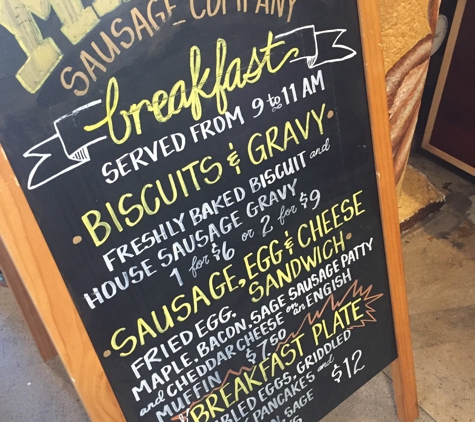 SAUSAGE COMPANY
breakfast
SERVED FROM 9 to 11 AM
• BISCUITS & GRAVY •
FRESHLY BAKED BISCUIT and
HOUSE SAUSAGE GRAVY
1 for $6 or 2 for $9
• SAUSAGE, EGG & CHEESE
SANDWICH •
FRIED EGG,
MAPLE, BACON, SAGE SAUSAGE PATTY
and CHEDDAR CHEESE on an ENGISH
MUFFIN $7.50
BREAKFAST PLATE
EGGS, GRIDDLED
PANCAKES and $12
SAGE